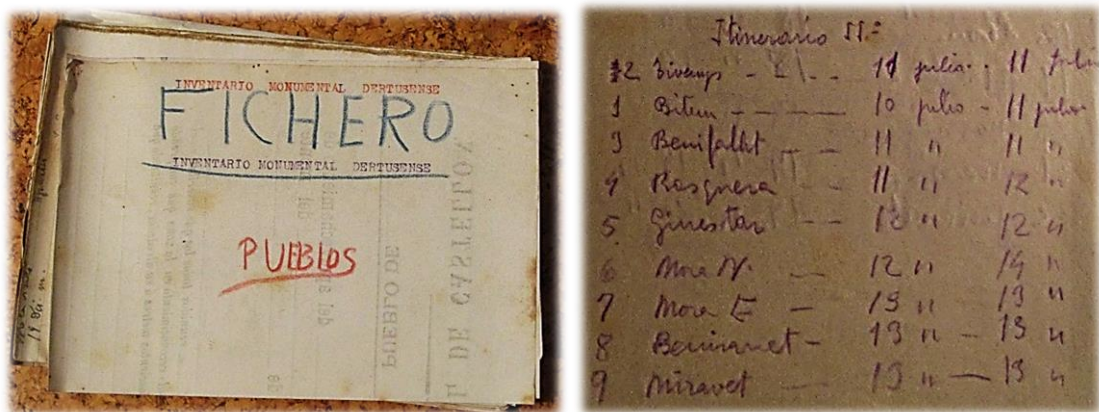 INVENTARIO MONUMENTAL DERTUSENSE
FICHERO
INVENTARIO MONUMENTAL DERTUSENSE
PUEBLOS
L DE CASTELLOX
PUEBLO DE
Itinerario II.=
2 Bivenys - - - - 11 julio - 11 julio
1 Bitem - - - - 10 julio - 11 julio
3 Benifallet - - 11 " 11 "
4 Rasquera - - 11 " 12 "
5 Ginestar - - 12 " 12 "
6 Mora N. - 12 " 14 "
7 Mora E - 13 " 13 "
8 Benisanet - 13 " - 13 "
9 Miravet - 13 " - 13 "